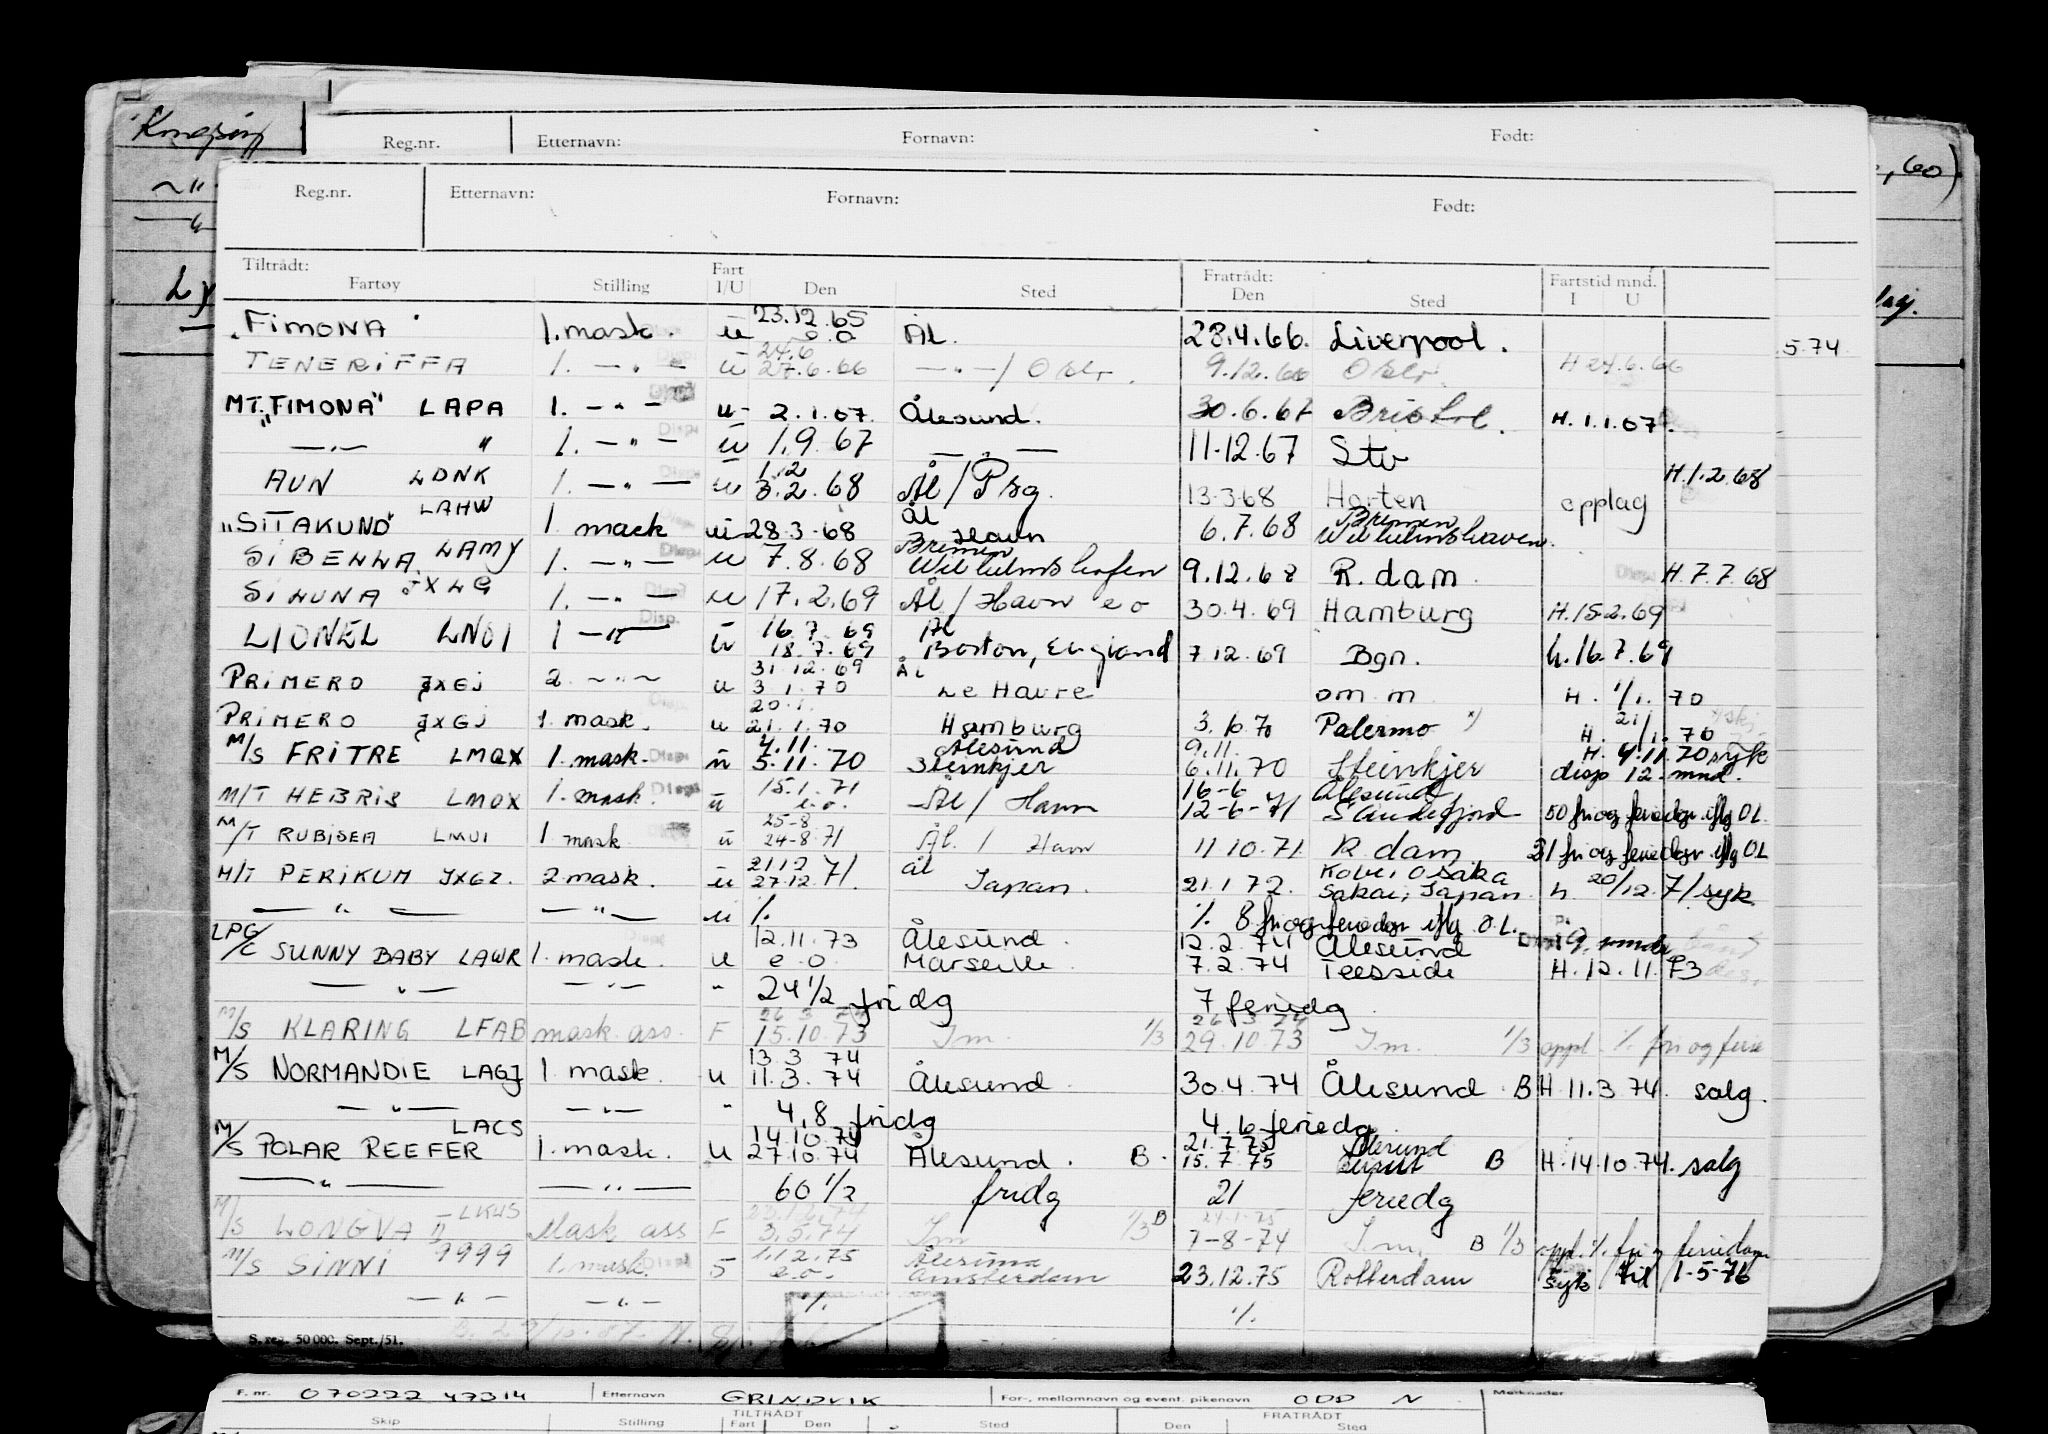 Kongsing
Reg.nr. Etternavn: Fornavn: Født:
60)
Reg.nr. Etternavn: Fornavn: Født:
Tiltrådt: Fratrådt:
Fartøy Stilling Fart I/U Den Sted Den Sted Fartstid mnd. I U
"FIMONA" 1. mask. u 23.12.65 e.o Ål. 28.4.66. Liverpool.
5.74
TENERIFFA 1. — " — u 24.6 27.6.66 — " — / Oslo. 9.12.66 Oslo. H 24.6.66
MT. "FIMONA" LAPA 1. — " — u 2.1.67. Ålesund. 30.6.67 Bristol. H. 1.1.67.
— " — " 1. — " — u 1.9.67 — " — 11-12.67 Stv
AUN LDNK 1. — " — u 1.2 3.2.68 Ål / Psg. 13-3-68 Horten opplag H.1.2.68
"SITAKUND" LAHW 1. mask u 28.3-68 Ål Havn 6.7.68 Bremen Wilhelmshaven.
SIBELLA LAMY 1. — " — u 7.8.68 Bremen Wilhelmshafen 9.12.68 R.dam. H.7.7.68
SILUNA JXLG 1. — " — u 17.2.69 Ål / Havn e o 30.4.69 Hamburg H.15.2.69
LIONEL LNOI 1 — " — u 16.7.69 18.7.69 Ål Boston, England 7.12.69 Bgn. h.16.7.69
PRIMERO JXGJ 2. — " — u 31.12.69 3.1.70 Ål Le Havre om.m H. 1/1. 70
PRIMERO JXGJ 1. mask. u 20.1. 21.1.70 Hamburg 3.6.70 Palermo x) H. 21/1. 70
M/S FRITRE LMQX 1. mask. u 4.11. 5.11.70 Ålesund Steinkjer 9.11. 6.11.70 Steinkjer H. 4.11.70 syk disp 12. mnd.
M/T HEBRIS LMOX 1. mask. u 15.1.71 e.o. Ål / Havn 16-6 12-6-71 Ålesund Sandefjord 50 fri og feriedgr iflg O.L.
M/T RUBISEA LMUI 1. mask u 25-8 24-8.71 Ål. / Havn 11 10.71 R.dam 31 fri og feriedgr iflg O.L
M/T PERIKUM JXGZ. 2. mask. u 21.12 27.12.71. ål Japan. 21.1 72. Kobe, Osaka Sakai, Japan. h 20/12. 71 syk
— " — — " — u ·/. ·/. 8 fri og feriedgr iflg O.L.
LPG/C SUNNY BABY LAWR 1. mask. u 12.11.73 e o. Ålesund. Marseille. 12.2.74 7.2.74 Ålesund Teesside H.12.11.73
— " — — " — " 24 1/2 fridg 7 feriedg
M/S KLARING LFAB mask.ass. F 15.10.73 I.m. 1/3 26 3 74 29.10.73 I.m. 1/3 oppl. ·/. fri og ferie
M/S NORMANDIE LAGJ 1. mask. u 13.3 74 11.3.74 Ålesund. 30.4.74 Ålesund. B H.11.3 74. salg.
— " — — " — " 4,8 fridg 4.6 feriedg
M/S POLAR REEFER LACS 1. mask. u 14.10.74 27.10.74 Ålesund. B. 21.7.75 15.7.75 Ålesund B H.14.10.74. salg
— " — — " — 60 1/2 fridg 21 feriedg
M/S LONGVA II LKUS Mask ass F 3.5.74 I m 1/3 B 24.1.75 7-8-74 I.m. B 1/3 oppl. ·/. fri og feriedgr
M/S SINNI 9999 1. mask. 5 1.12.75 e.o. Ålesund Amsterdam 23.12.75 Rotterdam syk til 1-5-76
— " — — " — ·/. ·/.
S. reg. 50 000. Sept./51.
F. nr. 070222 47314 Etternavn GRINDVIK For-, mellomnavn og event. pikenavn ODD N Merknader
TILTRÅDT FRATRÅDT
Skip Stilling Fart Den Sted Den Sted